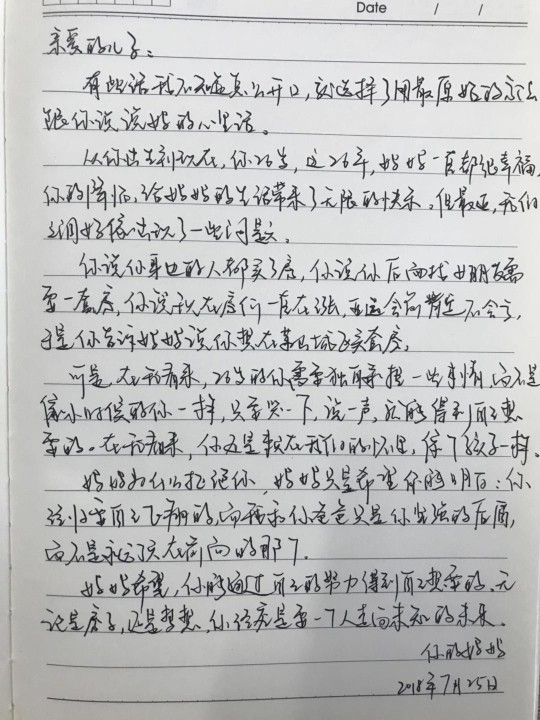 Date / /
亲爱的儿子：
有些话我不知道怎么开口，就选择了用最原始的方法
跟你说说妈妈的心里话。
从你出生到现在，你26岁，这26年，妈妈一直都很幸福，
你的降临，给妈妈的生活带来了无限的快乐。但最近，我们
之间好像出现了一些问题。
你说你身边的人都买了房，你说你后面找女朋友需
要一套房，你说现在房价一直在涨，
于是你告诉妈妈说你想在某区域买套房。
可是，在我看来，26岁的你需要独自承担一些事情，而不是
像小时候的你一样，只要哭一下，说一声，就能得到自己想
要的。在我看来，你还是躲在我们的怀里，像个孩子一样。
妈妈为什么拒绝你，妈妈只是希望你能明白：你
终归要自己飞翔的，而我和你爸爸只是你坚强的后盾，
而不是永远头在前面的那个。
妈妈希望，你能通过自己的努力得到自己想要的，无
论是房子，还是梦想，你终究是要一个人走向未知的未来。
你的妈妈
2018年7月25日